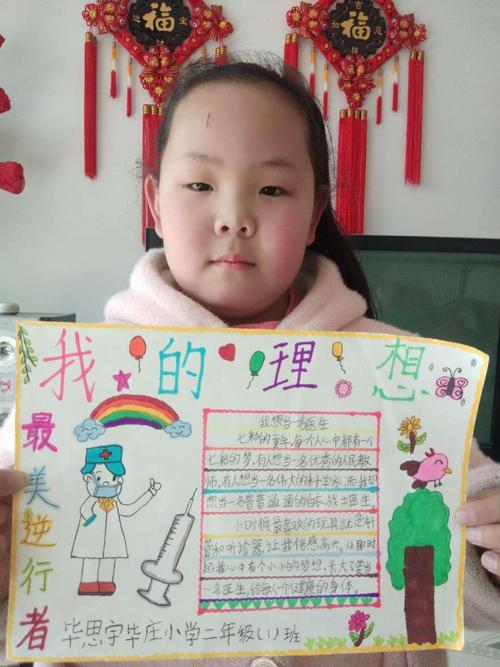 福
福
我的理想
最美逆行者
我想当一名医生
七彩的童年,每个人心中都有一个
七彩的梦,有人想当一名优秀的人民教
师,有人想当一名伟大的科学家,而我却
想当一名普普通通的白衣战士医生
小时候最喜欢的玩具就是针
管和听诊器,让我倍感高大,从那时
起我心中有个小小的梦想,长大了要当
一名医生,给每一个健康的身体。
毕思宇毕庄小学二年级(1)班